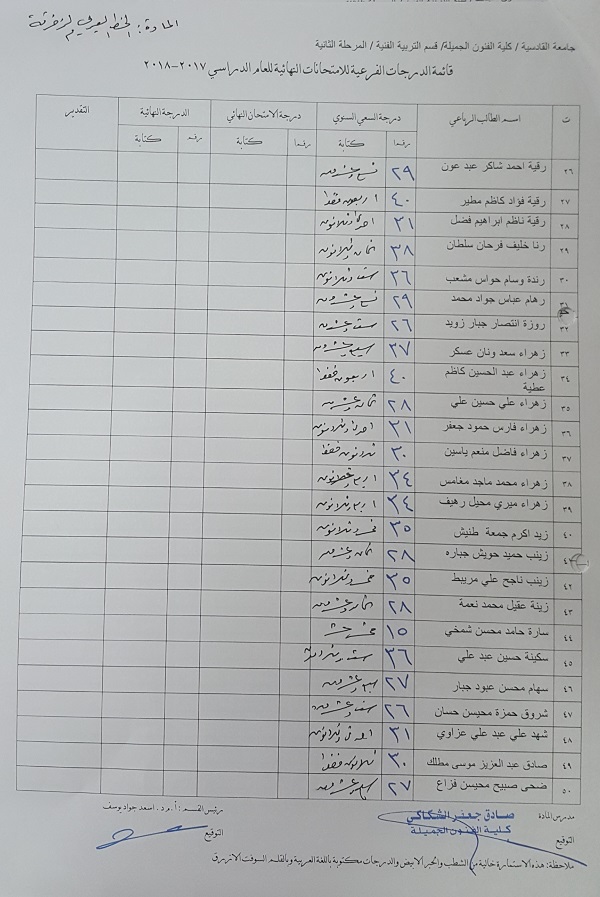 المادة: الخط العربي والزخرفة
جامعة القادسية / كلية الفنون الجميلة/ قسم التربية الفنية / المرحلة الثانية
قائمة الدرجات الفرعية للامتحانات النهائية للعام الدراسي ٢٠١٧-٢٠١٨
ت اسم الطالب الرباعي درجة السعي السنوي درجة الامتحان النهائي الدرجة النهائية التقدير
رقما كتابة رقما كتابة رقما كتابة
٢٦ رقية احمد شاكر عبد عون ٢٩ تسع وعشرون
٢٧ رقية فؤاد كاظم مطير ٤٠ اربعون فقط
٢٨ رقية ناظم ابراهيم فضل ٣١ احدى وثلاثون
٢٩ رنا خليف فرحان سلطان ٣٨ ثمان وثلاثون
٣٠ رندة وسام حواس مشعب ٣٦ ست وثلاثون
٣١ رهام عباس جواد محمد ٢٩ تسع وعشرون
٣٢ روزة انتصار جبار زويد ٢٦ ست وعشرون
٣٣ زهراء سعد ونان عسكر
٣٤ زهراء عبد الحسين كاظم عطية ٤٠ اربعون فقط
٣٥ زهراء علي حسين علي ٢٨ ثمان وعشرون
٣٦ زهراء فارس حمود جعفر ٣١ احدى وثلاثون
٣٧ زهراء فاضل منعم ياسين ٣٠ ثلاثون فقط
٣٨ زهراء محمد ماجد مغامس ٣٤ اربع وثلاثون
٣٩ زهراء ميري محيل رهيف ٣٤ اربع وثلاثون
٤٠ زيد اكرم جمعة طنيش ٣٥ خمس وثلاثون
٤١ زينب حميد حويش جباره ٢٨ ثمان وعشرون
٤٢ زينب ناجح علي مريبط ٣٥ خمس وثلاثون
٤٣ زينة عقيل محمد نعمة ٢٨ ثمان وعشرون
٤٤ سارة حامد محسن شمخي ١٥
٤٥ سكينة حسين عبد علي ٣٦ ست وثلاثون
٤٦ سهام محسن عبود جبار ٢٧ سبع وعشرون
٤٧ شروق حمزة محيسن حسان ٢٦ ست وعشرون
٤٨ شهد علي عبد علي عزاوي ٣١ احدى وثلاثون
٤٩ صادق عبد العزيز موسى مطلك ٣٠ ثلاثون فقط
٥٠ ضحى صبيح محيسن فزاع ٢٧ سبع وعشرون
مدرس المادة صادق جعفر الشكاكي رئيس القسم : أ.م.د. اسعد جواد يوسف
كلية الفنون الجميلة
التوقيع التوقيع
ملاحظة: هذه الاستمارة خالية من الشطب والحبر الابيض والدرجات مكتوبة باللغة العربية وبالقلم السوفت الازرق